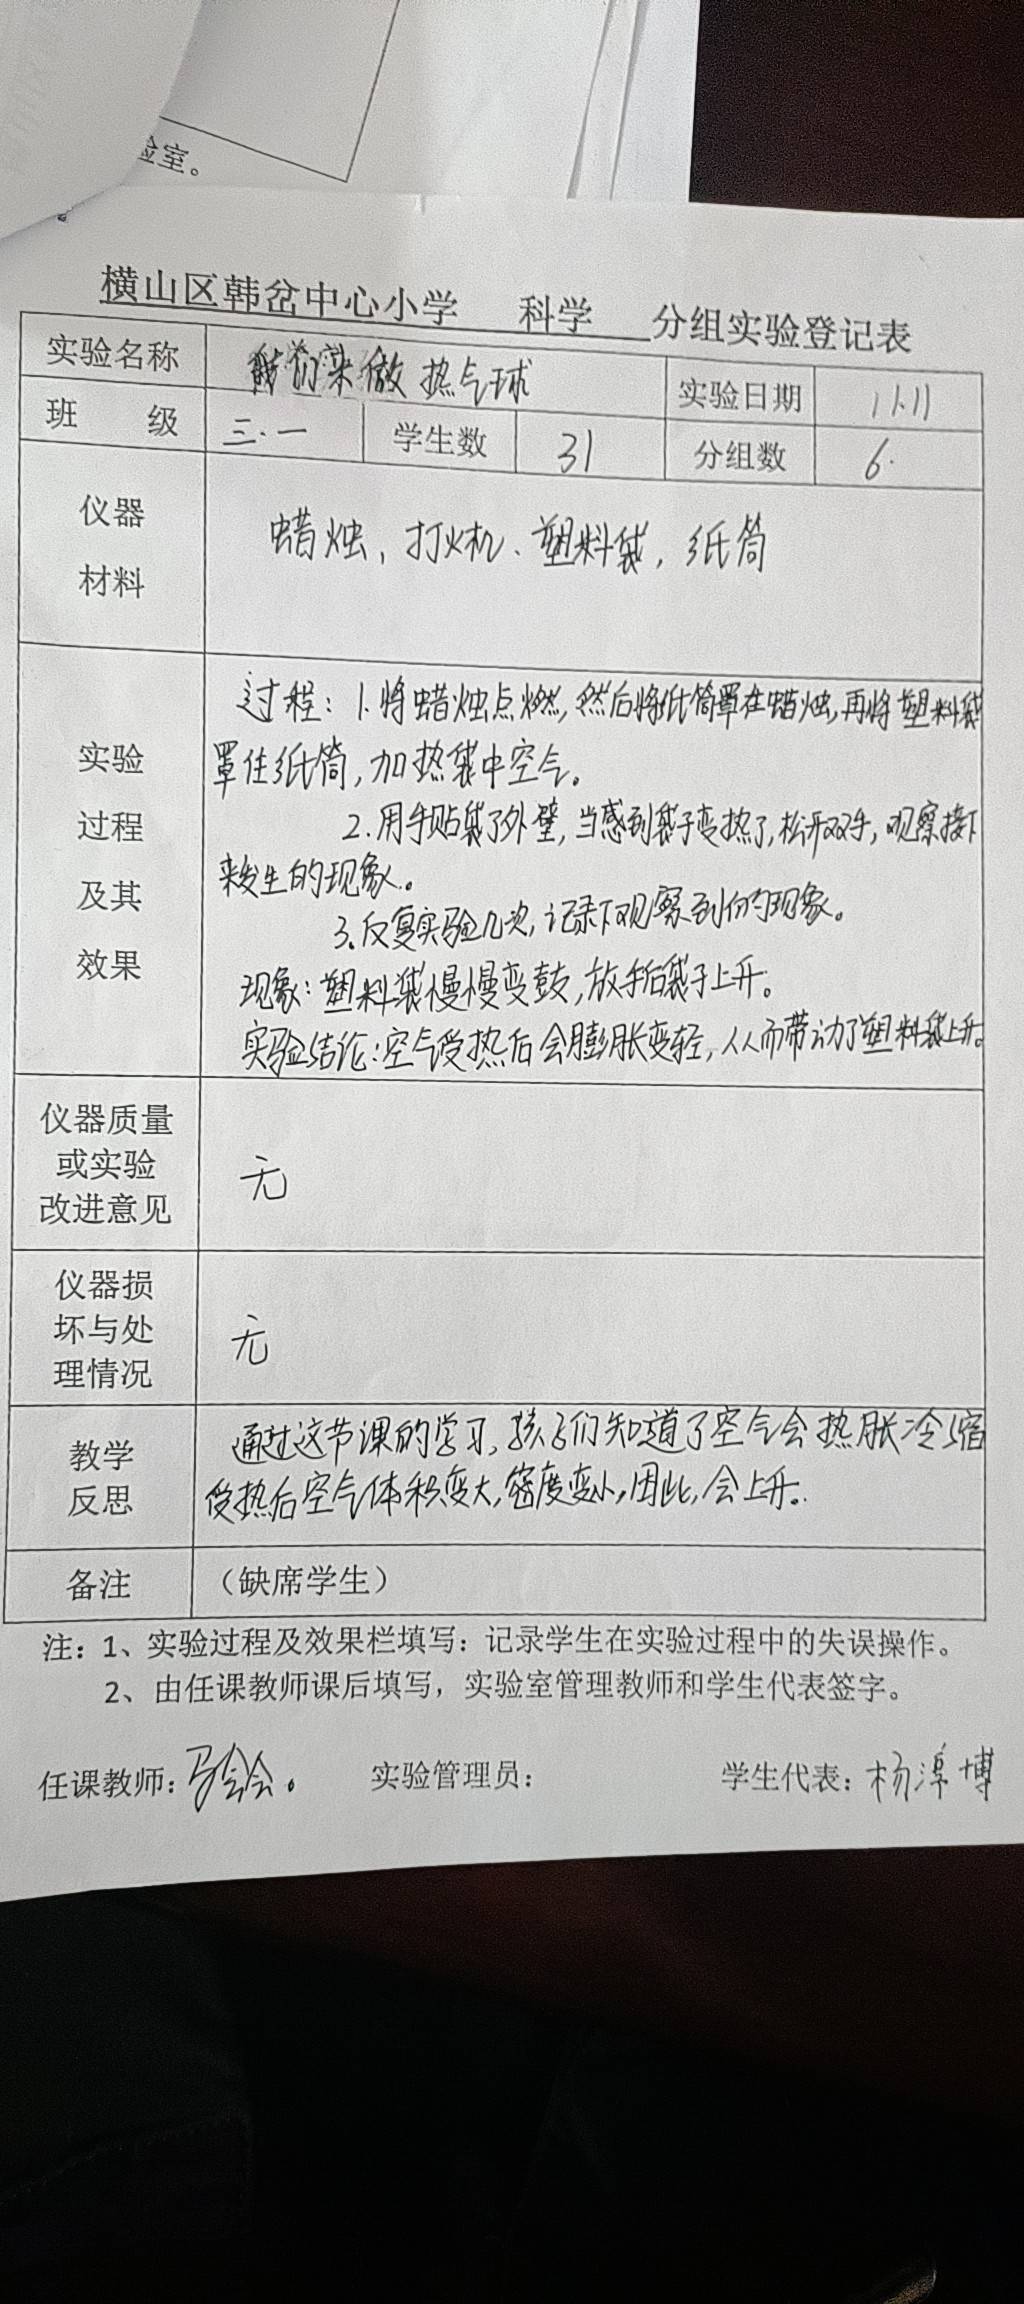 验室。
横山区韩岔中心小学 科学 分组实验登记表
实验名称 我们来做热气球 实验日期 11.11
班 级 三.一 学生数 31 分组数 6.
仪器
材料
蜡烛，打火机、塑料袋，纸筒
实验
过程
及其
效果
过程：1.将蜡烛点燃，然后将纸筒罩在蜡烛，再将塑料袋
罩住纸筒，加热袋中空气。
2.用手贴袋子外壁，当感到袋子变热了，松开双手，观察接下
来发生的现象。
3.反复实验几次，记录下观察到的现象。
现象：塑料袋慢慢变鼓，放手后袋子上升。
实验结论：空气受热后会膨胀变轻，从而带动了塑料袋上升。
仪器质量
或实验
改进意见
无
仪器损
坏与处
理情况
无
教学
反思
通过这节课的学习，孩子们知道了空气会热胀冷缩
受热后空气体积变大，密度变小，因此，会上升。
备注 （缺席学生）
注：1、实验过程及效果栏填写：记录学生在实验过程中的失误操作。
2、由任课教师课后填写，实验室管理教师和学生代表签字。
任课教师：马会会。 实验管理员： 学生代表：杨淳博